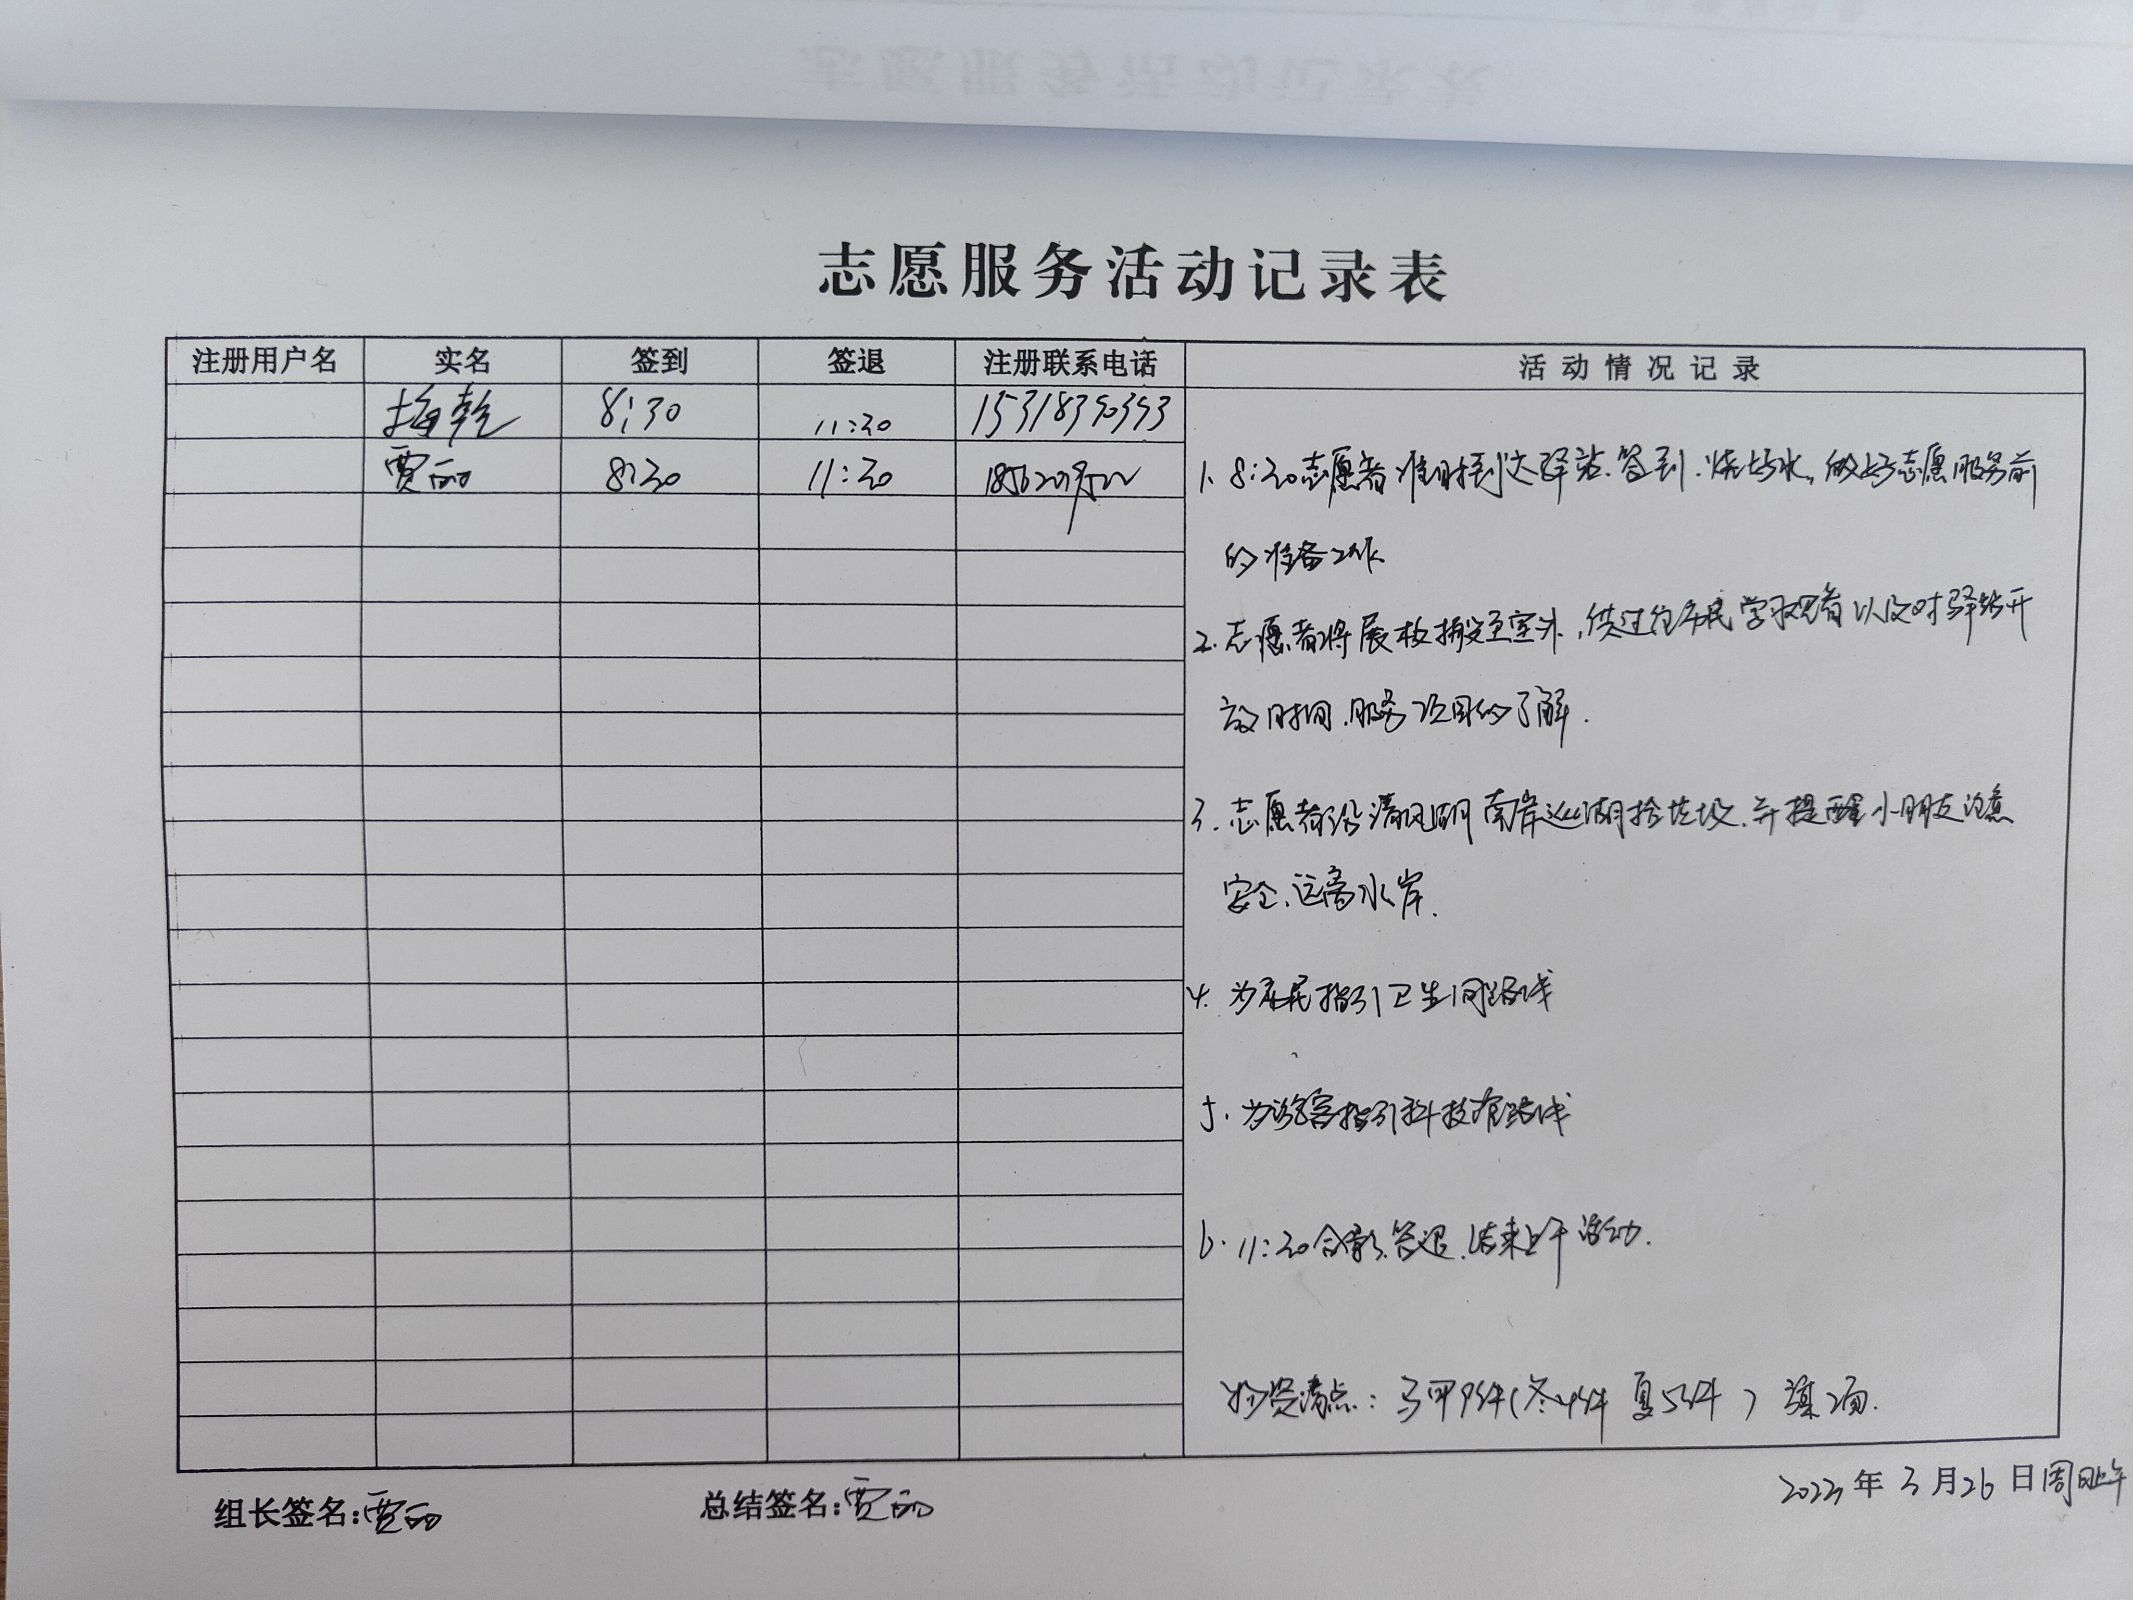 志愿服务活动记录表
注册用户名 实名 签到 签退 注册联系电话 活动情况记录
梅乾 8:30 11:30 15318390393
贾丽 8:30 11:30
1. 8:30志愿者准时到达驿站.签到.烧好水,做好志愿服务前
的准备工作.
2.志愿者将展板摆放至室外,供过往市民学习观看以及对驿站开
放时间.服务项目的了解.
3.志愿者沿清风湖南岸巡湖捡垃圾.并提醒小朋友注意
安全、远离水岸.
4.为市民指引卫生间路线
5.为游客指引科技馆路线
6.11:30合影.签退.结束上午活动.
物资清点:马甲9件(冬4件 夏5件) 旗2面.
组长签名:贾丽 总结签名:贾丽
年3月26日周日上午